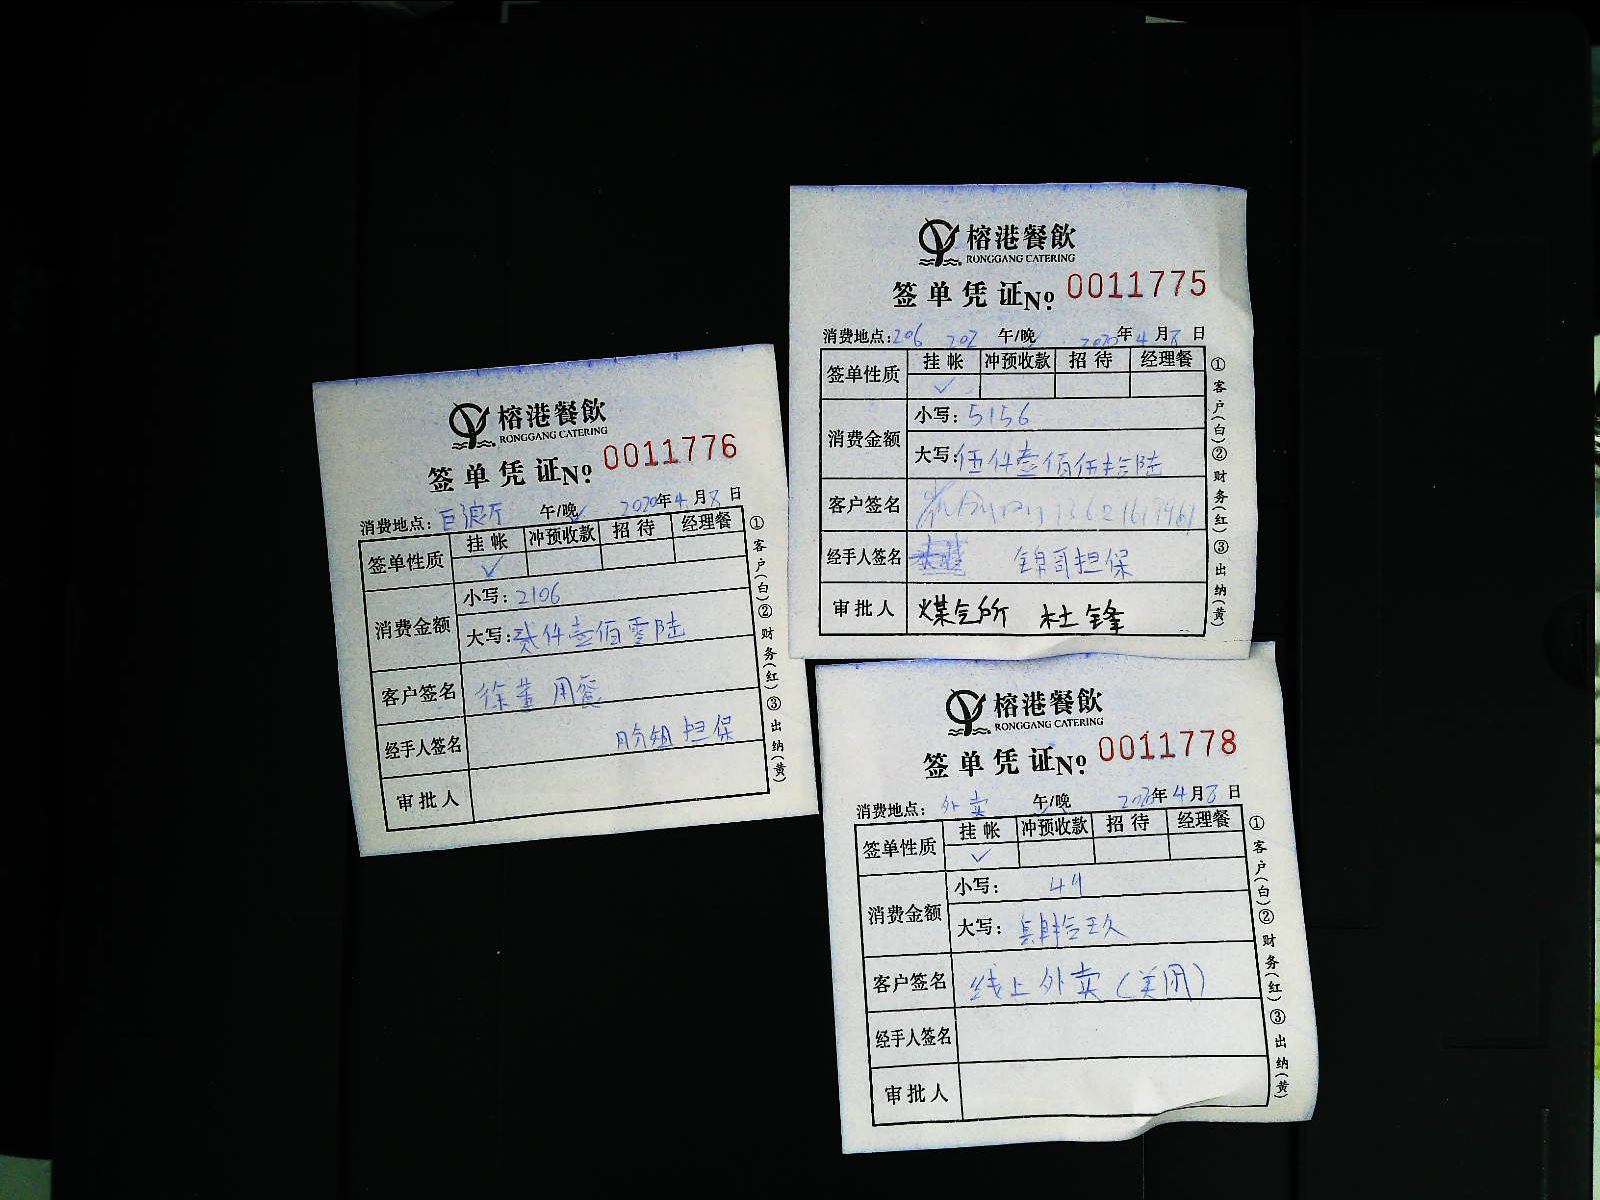 榕港餐飲
RONGGANG CATERING
签单凭证No. 0011776
消费地点: 巨浪厅 午/晚 2020年4月8日
签单性质 挂帐 冲预收款 招待 经理餐
✓
消费金额 小写: 2106
大写: 贰仟壹佰零陆
客户签名 徐董 用餐
经手人签名 姐 担保
审批人
①客户(白)②财务(红)③出纳(黄)
榕港餐飲
RONGGANG CATERING
签单凭证No. 0011775
消费地点: 206 202 午/晚 2020年4月8日
签单性质 挂帐 冲预收款 招待 经理餐
✓
消费金额 小写: 5156
大写: 伍仟壹佰伍拾陆
客户签名
经手人签名 锦哥担保
审批人 煤气所 杜锋
①客户(白)②财务(红)③出纳(黄)
榕港餐飲
RONGGANG CATERING
签单凭证No. 0011778
消费地点: 外卖 午/晚 2020年4月8日
签单性质 挂帐 冲预收款 招待 经理餐
✓
消费金额 小写:
大写:
客户签名 线上外卖(美团)
经手人签名
审批人
①客户(白)②财务(红)③出纳(黄)